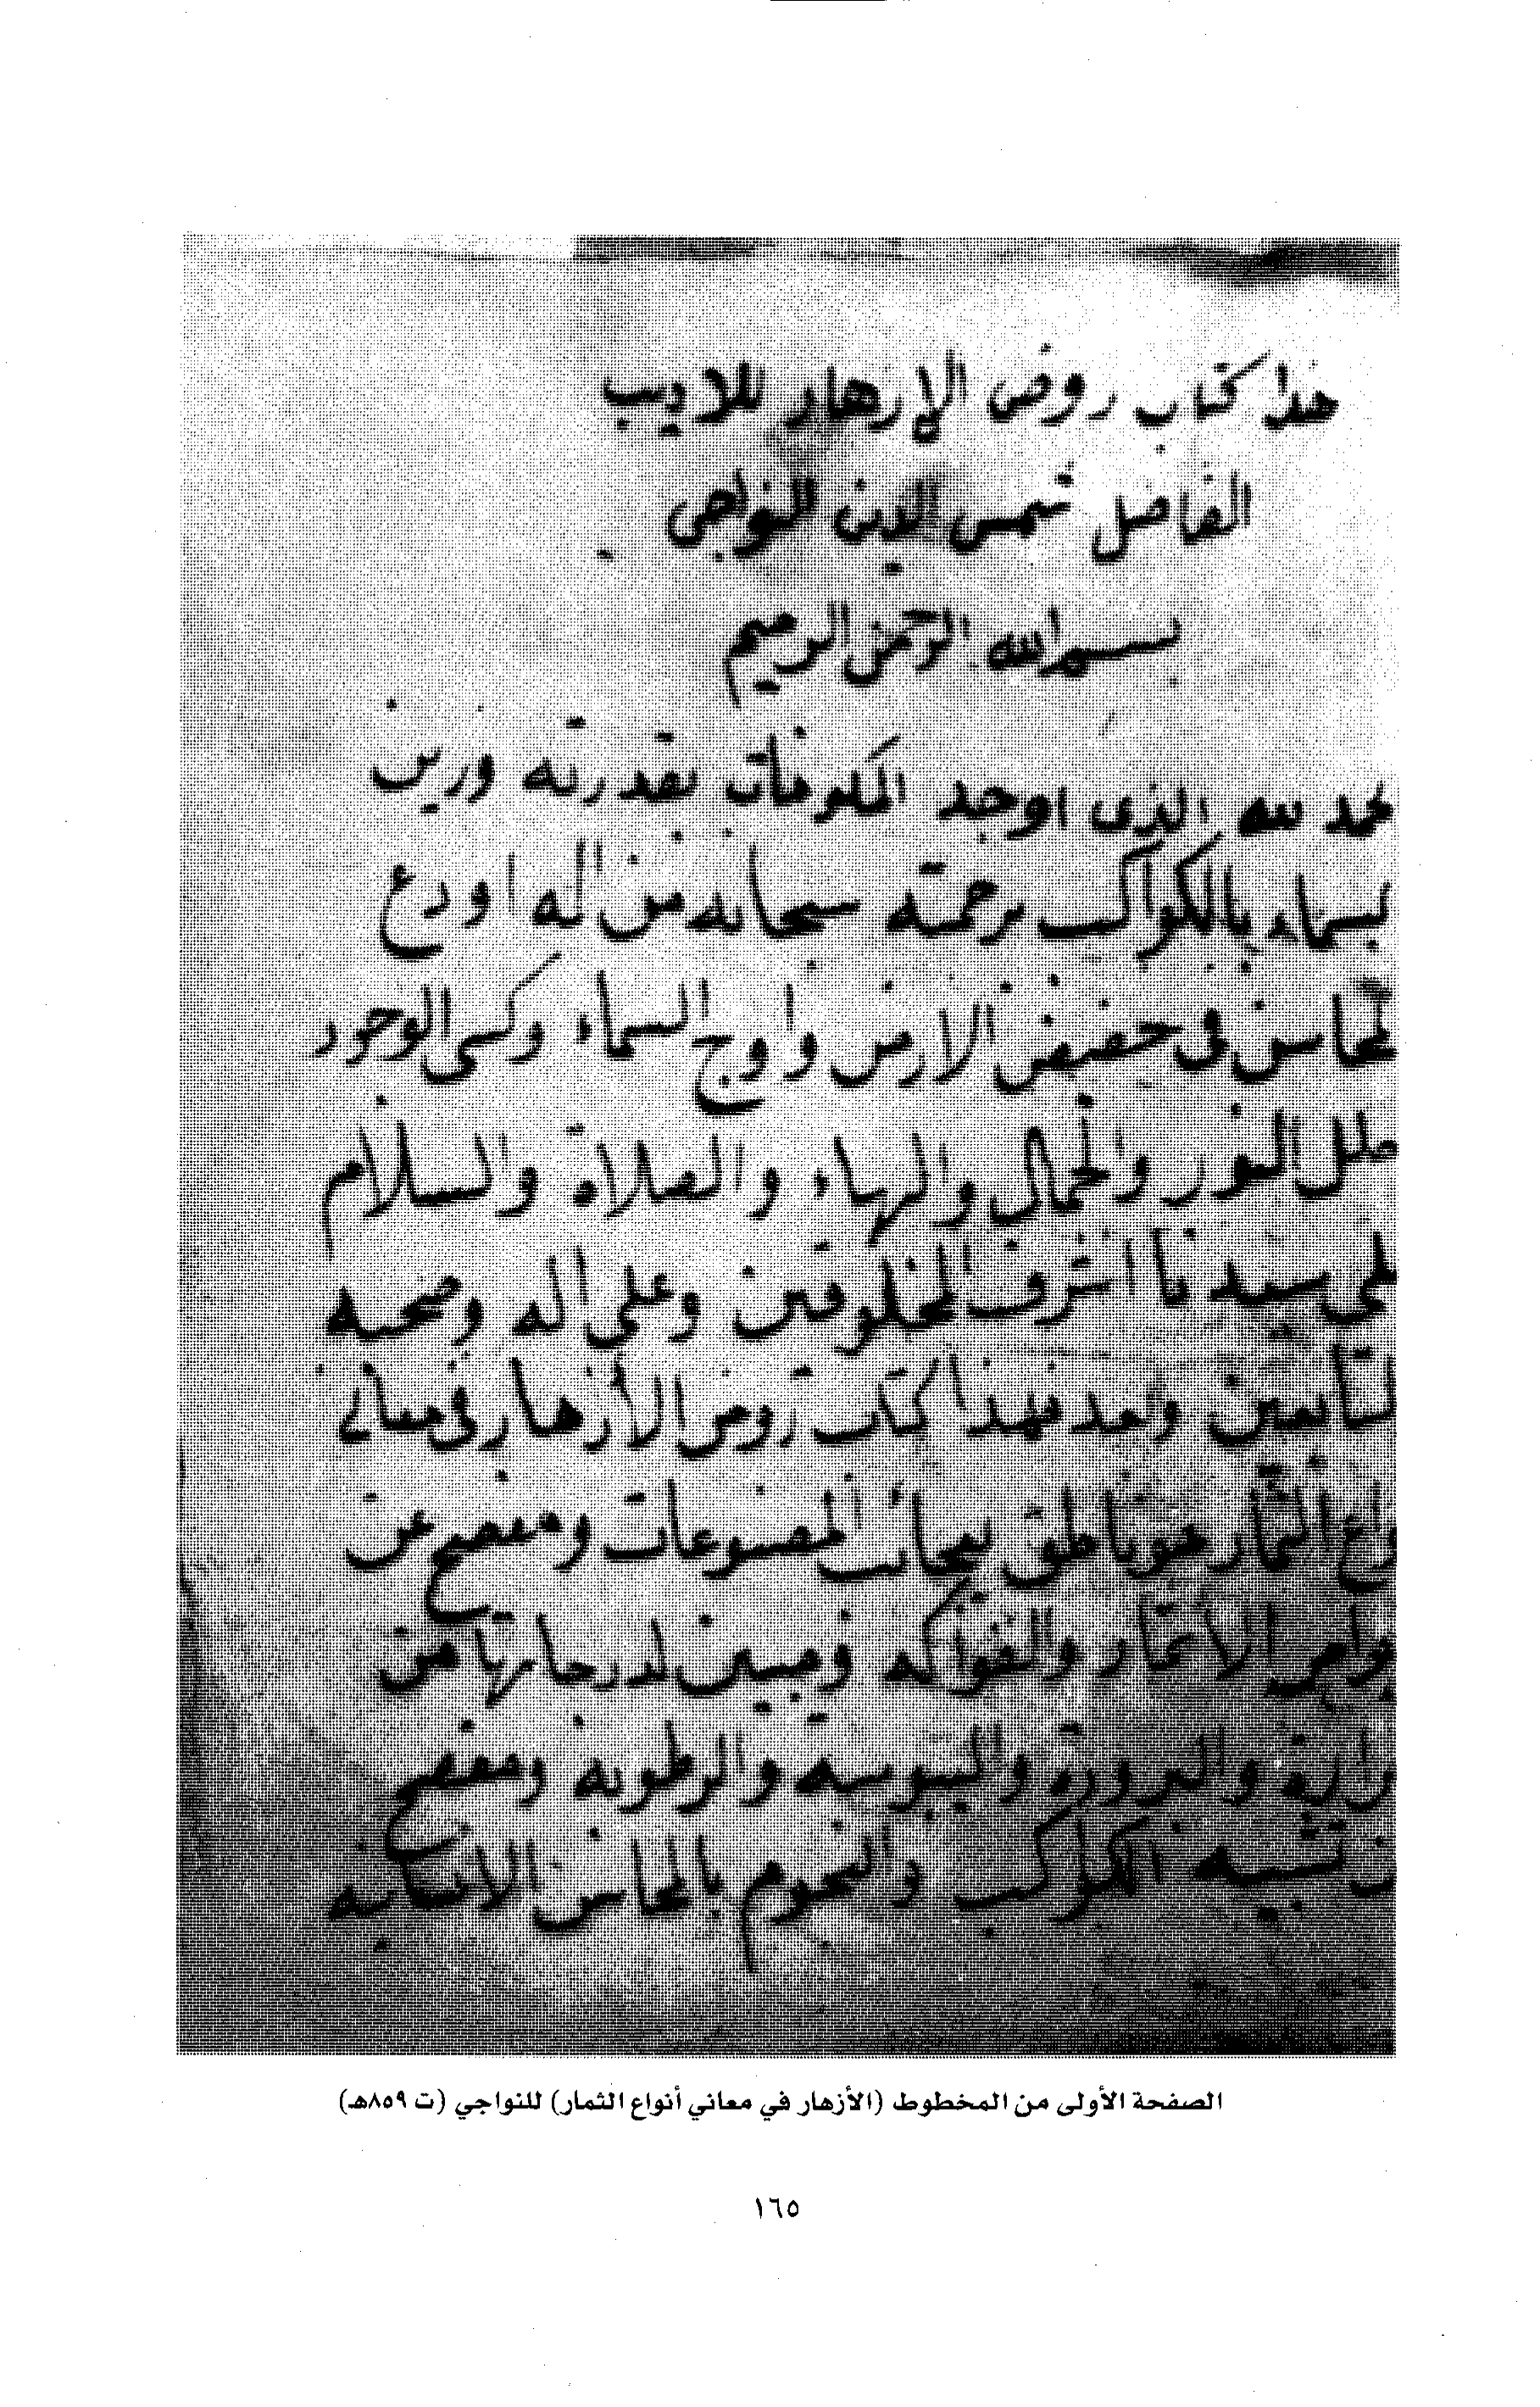 هذا كتاب روض الازهار للاديب
الفاضل شمس الدين النواجى
بسم الله الرحمن الرحيم
لحمد لله الذى اوجد المكونات بقدرته وزين
لسماء بالكواكب برحمته سبحانه من اله اودع
لمحاسن فى حضيض الارض واوج السماء وكسى الوجود
حلل النور والجمال والبهاء والصلاة والسلام
على سيدنا اشرف المخلوقين وعلى اله وصحبه
لتابعين وبعد فهذا كتاب روض الأزهار فى معانى
واع الثمار هو ناطق بعجائب المصنوعات ومفصح عن
واص الاثمار والفواكه ومبين لدرجاتها من
رارة والبرودة واليبوسة والرطوبه ومفصح
ن تشبيه الكواكب والنجوم بالمحاسن الانسانيه
الصفحة الأولى من المخطوط (الأزهار في معاني أنواع الثمار) للنواجي (ت ٨٥٩هـ)
١٦٥